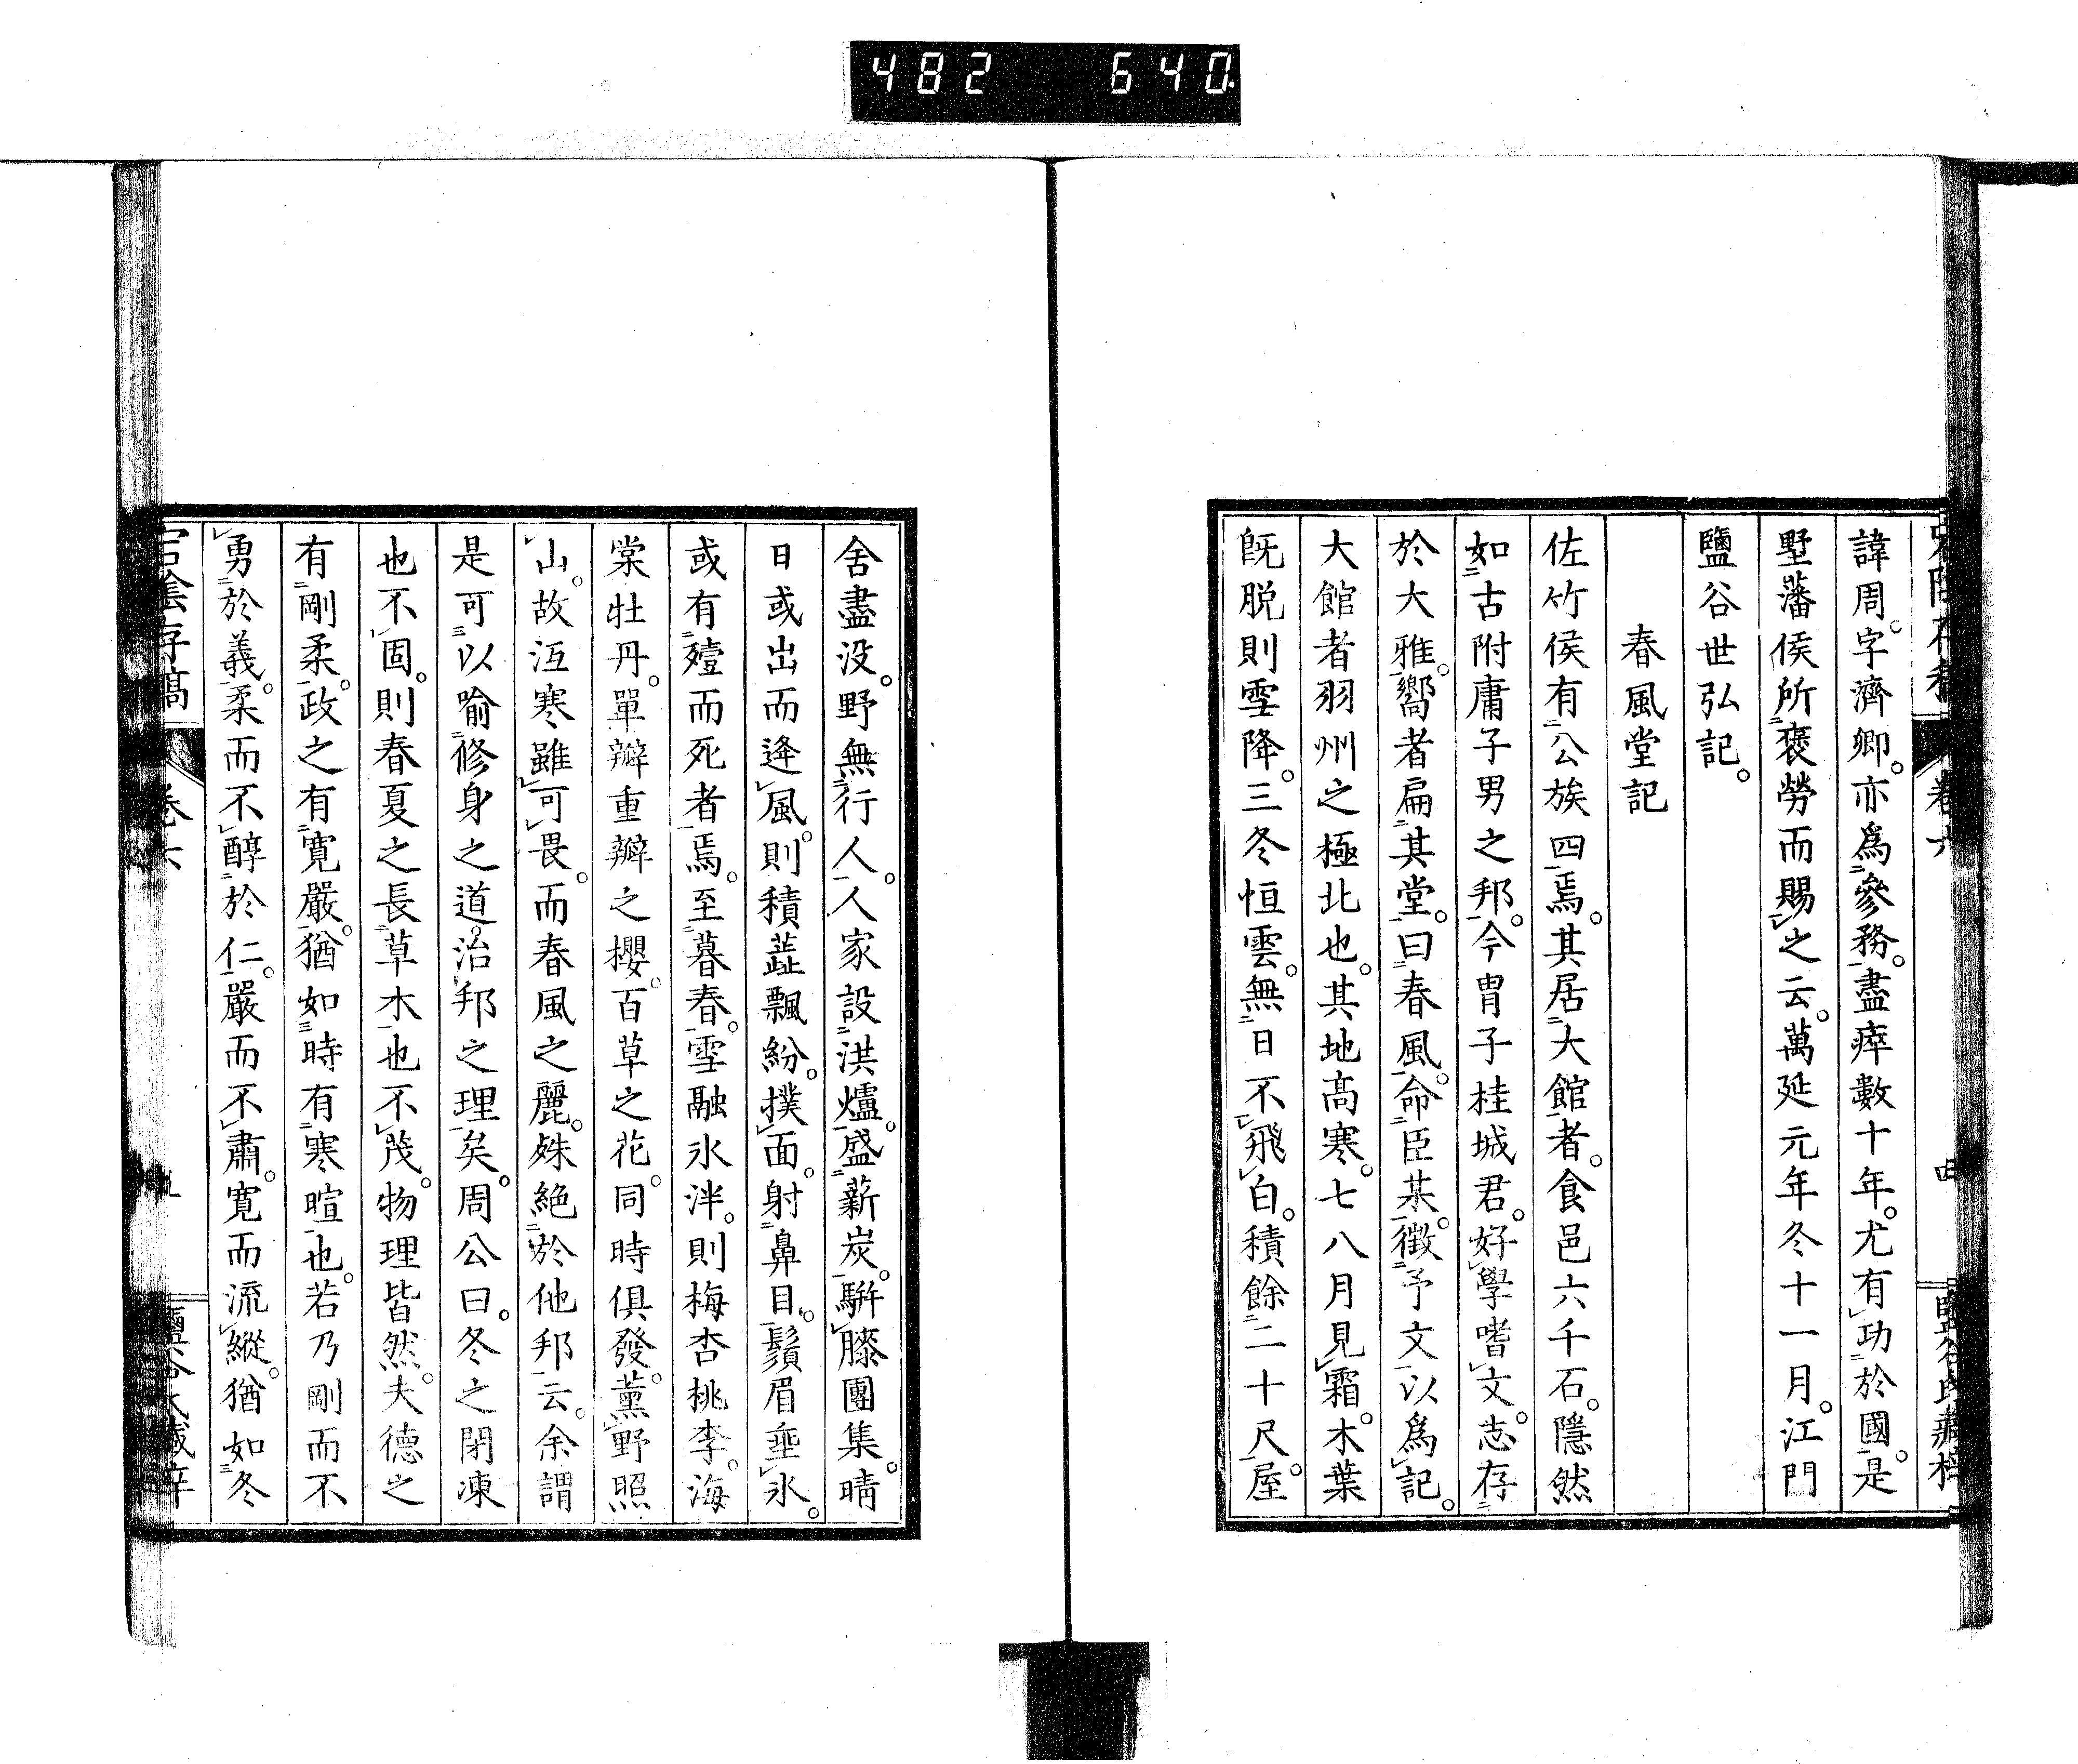 482 640
諱周。字濟卿。亦爲參務。盡瘁數十年。尤有功於國。是
墅藩侯所褒勞而賜之云。萬延元年冬十一月。江門
鹽谷世弘記。
春風堂記
佐竹侯有公族四焉。其居大館者。食邑六千石。隱然
如古附庸子男之邦。今胄子桂城君。好學嗜文。志存
於大雅。嚮者扁其堂。曰春風。命臣某。徵予文以爲記。
大館者羽州之極北也。其地高寒。七八月見霜。木葉
旣脱則雪降。三冬恒雲。無日不飛白。積餘二十尺。屋
舍盡没。野無行人。人家設洪爐。盛薪炭。駢膝團集。晴
日或出而逢風。則積䪢飄紛。撲面。射鼻目。鬚眉垂氷。
或有殪而死者焉。至暮春。雪融氷泮。則梅杏桃李。海
棠牡丹。單瓣重瓣之櫻。百草之花。同時俱發。薰野照
山。故沍寒雖可畏。而春風之麗。殊絕於他邦云。余謂
是可以喻修身之道。治邦之理矣。周公曰。冬之閉凍
也不固。則春夏之長草木也不茂。物理皆然。夫德之
有剛柔。政之有寛嚴。猶如時有寒暄也。若乃剛而不
勇於義。柔而不醇於仁。嚴而不肅。寛而流縱。猶如冬
卷六